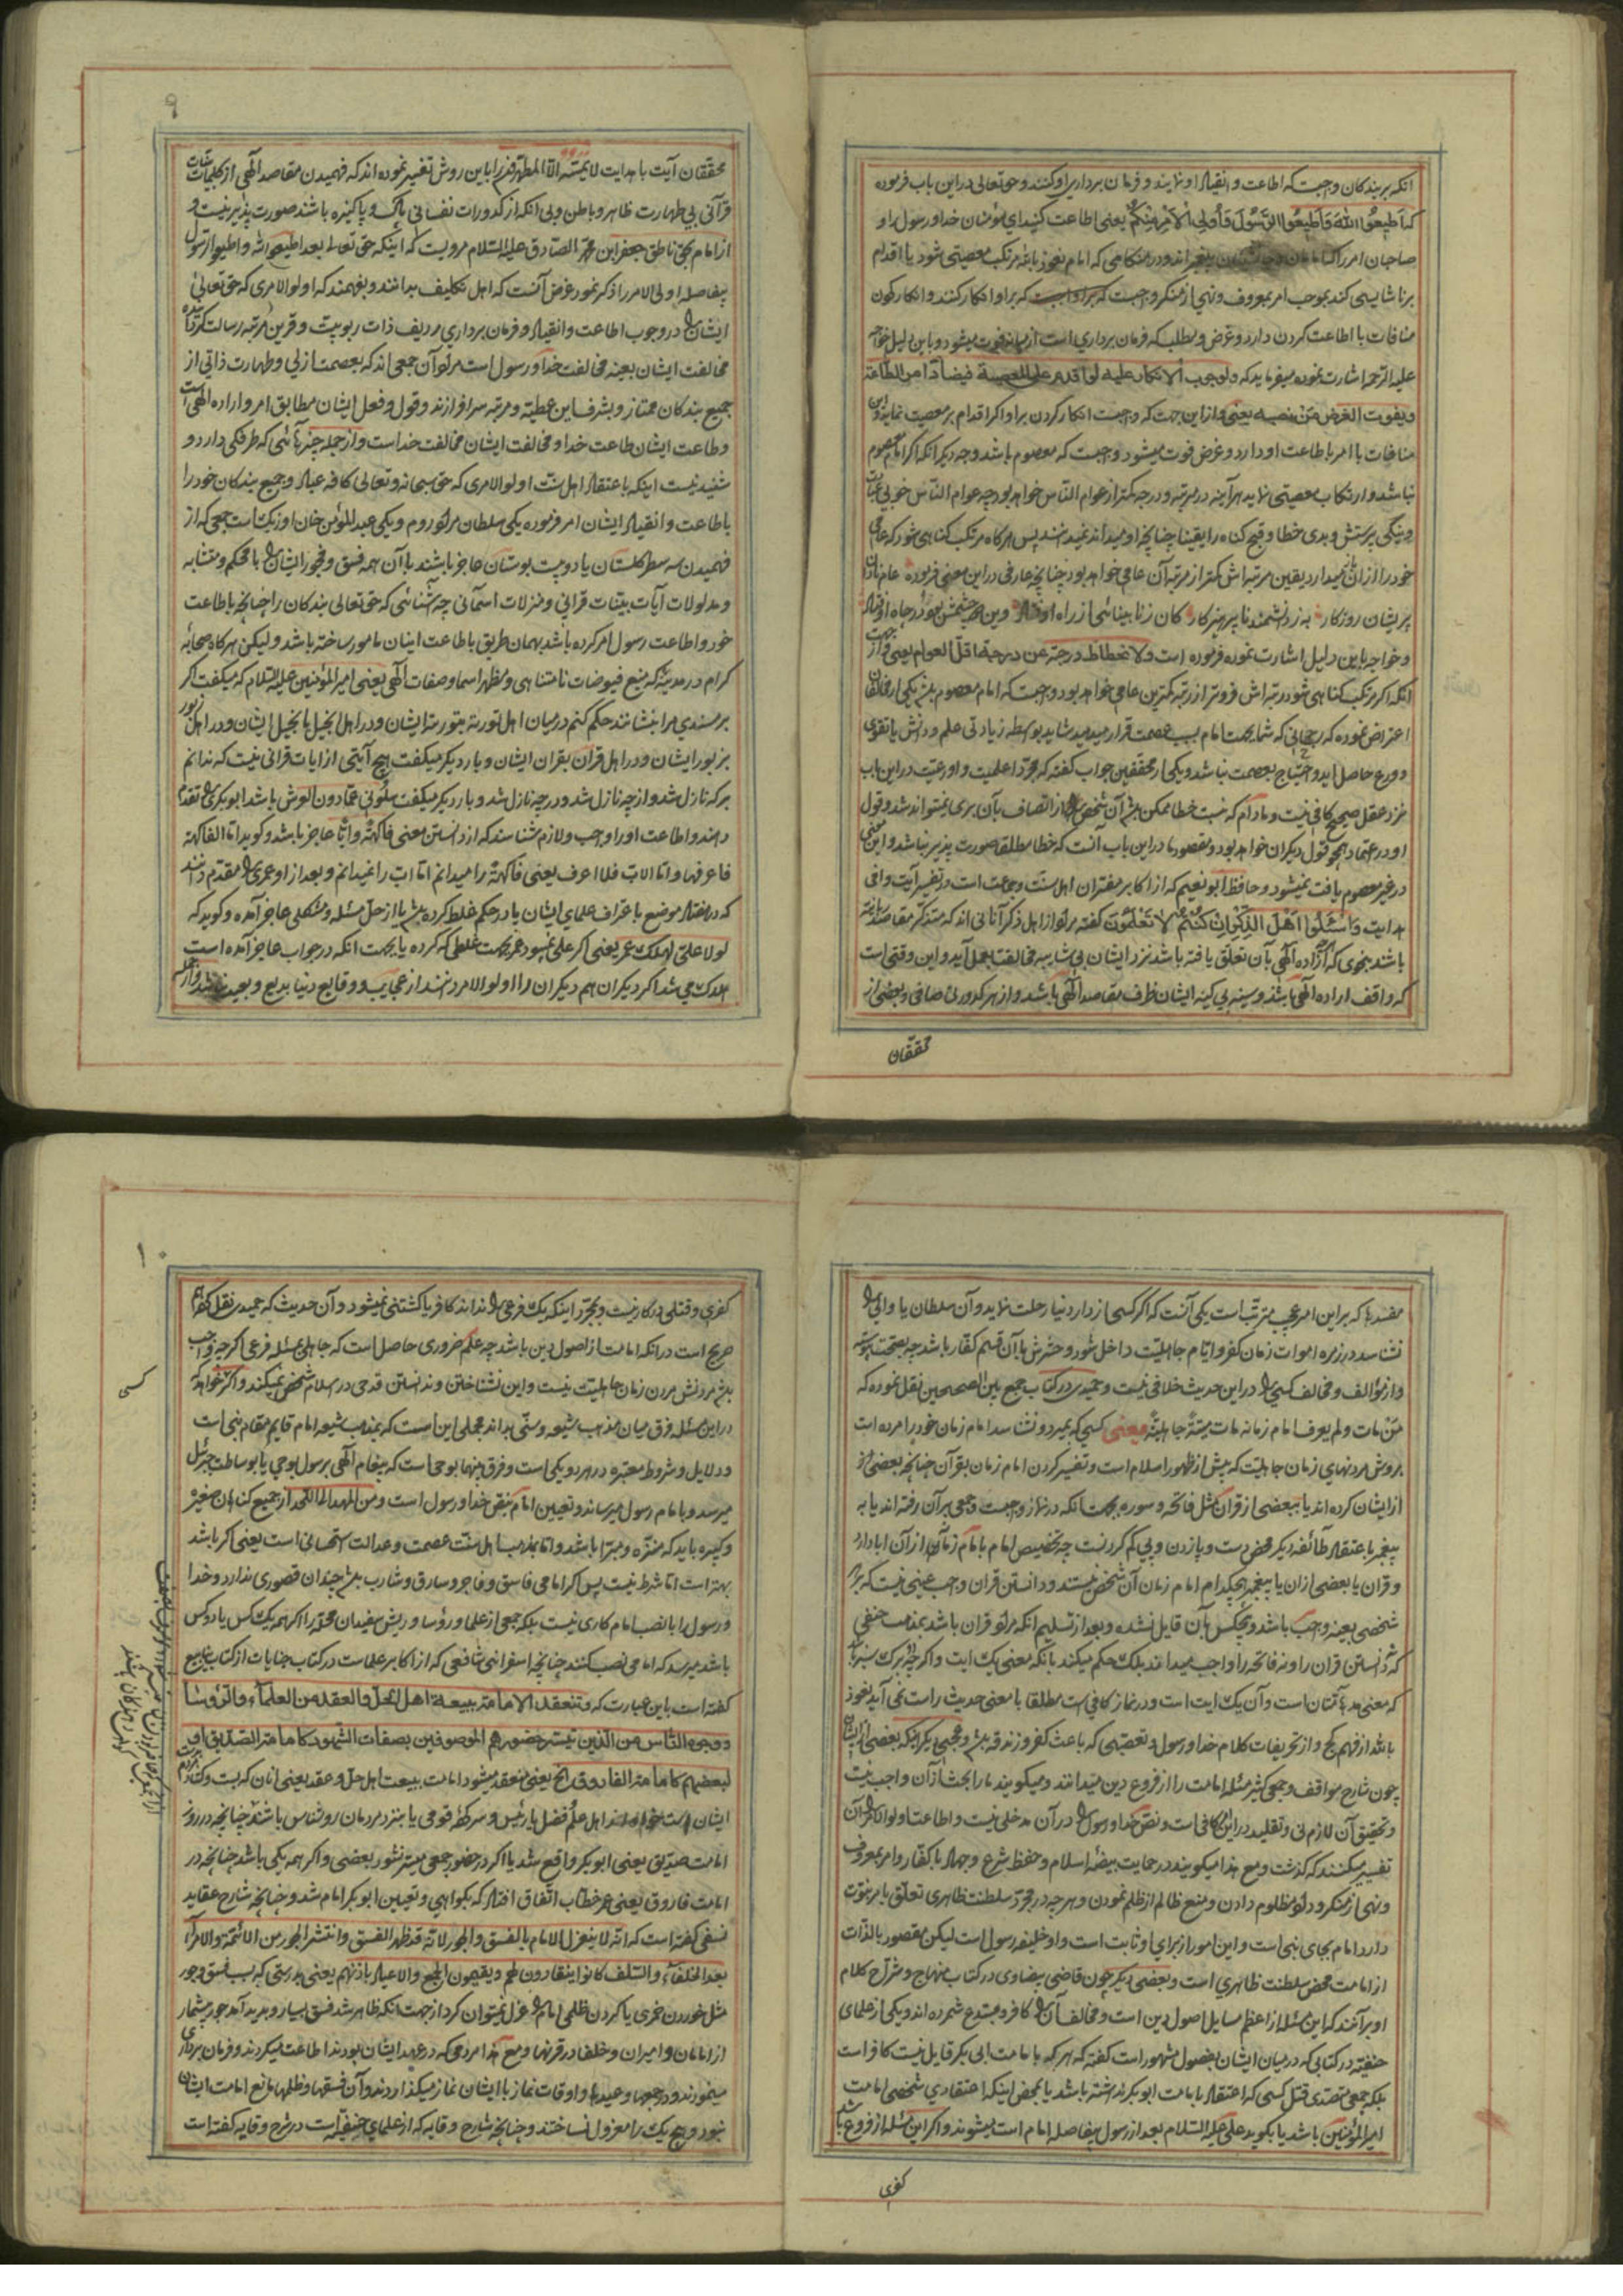 انکه بر بندکان واجبست که اطاعت و انقیاد او نمایند و فرمان برداری او کنند و حق تعالی در این باب فرموده
که اَطِیعُوا اللهَ وَاَطِیعُوا الرَّسُولَ وَاُولِی الاَمْرِ مِنْکُمْ یعنی اطاعت کنید ای مؤمنان خدا و رسول او و
صاحبان امر را که امامان و جانشینان پیغمبراند و در هنکامی که امام نعوذ بالله مرتکب معصیتی شود یا اقدام
برناشایستی کند بموجب امر بمعروف و نهی از منکر واجبست که بر او انکار کنند و انکار کردن
منافات با اطاعت کردن دارد و غرض و مطلب که فرمان برداری است از میانه فوت میشود و باین دلیل خواجه
علیه الرحمه اشارت نموده میفرماید که ولوجوب الانکار علیه لو اقدم علی المعصیة فیضاد امر الطاعة
ویفوت الغرض من نصبه یعنی و از این جهت که واجبست انکار کردن بر او اکر اقدام بر معصیت نماید و این
منافات با امر باطاعت او دارد و غرض فوت میشود واجبست که معصوم باشد وجه دیکر انکه اکر امام معصوم
نباشد و ارتکاب معصیتی نماید هرآینه در مرتبه و درجه کمتر از عوام الناس خواهد بود چه عوام الناس خوبی عبادت
و نیکی پرستش و بدی خطا و قبح کناه را یقینا چنانچه او میداند نمیدانند پس هر کاه مرتکب کناهی شود که عامی
خود را از آن نکاه میدارد یقین مرتبه اش کمتر از مرتبه آن عامی خواهد بود چنانچه عارفی در این معنی فرموده عام نادان
پریشان روزکار به ز دانشمند ناپرهیزکار کان ز نابینائی از راه اوفتاد وین دو چشمش بود و در چاه اوفتاد
و خواجه باین دلیل اشارت نموده فرموده است ولانحطاط درجته عن درجة اقل العوام یعنی و از جهت
انکه اکر مرتکب کناهی شود رتبه اش فروتر از رتبه کمترین عامی خواهد بود واجبست که امام معصوم باشد یکی از مخالفان
اعتراض نموده که رجحانی که شما بجهت امام بسبب عصمت قرار میدهید شاید بواسطه زیادتی علم و دانش یا تقوی
و ورع حاصل اید و احتیاج بعصمت نباشد و یکی از محققین جواب کفته که مجرد اعلمیت و اورعیت در این باب
نزد عقل صحیح کافی نیست و مادام که نسبت خطا ممکن باشد آن شخص را از اتصاف بآن بری نمیتواند شد و قول
او در اعتماد همچو قول دیکران خواهد بود و مقصود ما در این باب آنست که خطا مطلقا صورت پذیر نباشد و این معنی
در غیر معصوم یافت نمیشود و حافظ ابو نعیم که از اکابر مفسران اهل سنت و جماعت است در تفسیر آیت وافی
هدایت وَاسْئَلُوا اَهْلَ الذِّکْرِ اِنْ کُنْتُمْ لا تَعْلَمُونَ کفته مراد از اهل ذکر آنانی اند که متذکر مقاصد ربانیه
باشد بنحوی که اراده الهی بآن تعلق یافته باشد نزد ایشان بی شایبه مخالفت بعمل آید و این وقتی است
که واقف اراده الهی باشند و سینه بی کینه ایشان ظرف مقاصد الهی باشد و از هر کدورتی صافی و بعضی از
محققان
۹
محققان آیت با هدایت لا یمسه الا المطهرون را باین روش تفسیر نموده اند که فهمیدن مقاصد الهی از کلمات بینات
قرآنی بی طهارت ظاهر و باطن و بی انکه از کدورات نفسانی پاک و پاکیزه باشند صورت پذیر نیست و
از امام بحق ناطق جعفر ابن محمد الصادق علیه السلام مرویست که اینکه حق تعالی بعد اطیعوا الله و اطیعوا الرسول
بیفاصله اولی الامر را ذکر نمود غرض آنست که اهل تکلیف بدانند و بفهمند که اولو الامری که حق تعالی
ایشان را در وجوب اطاعت و انقیاد و فرمان برداری ردیف ذات ربوبیت و قرین مرتبه رسالت کردانیده
مخالفت ایشان بعینه مخالفت خدا و رسول است مراد آن جمعی اند که بعصمت ازلی و طهارت ذاتی از
جمیع بندکان ممتاز و بشرف این عطیه و مرتبه سرافرازند و قول و فعل ایشان مطابق امر و اراده الهی است
و طاعت ایشان طاعت خدا و مخالفت ایشان مخالفت خداست و از جمله چیزهائی که طرفکی دارد و
شنیدنیست اینکه باعتقاد اهل سنت اولو الامری که حق سبحانه و تعالی کافه عباد و جمیع بندکان خود را
باطاعت و انقیاد ایشان امر فرموده یکی سلطان مراد روم و یکی عبد المؤمن خان اوزبک است جمعی که از
فهمیدن سه سطر کلستان یا دو بیت بوستان عاجز باشند با آن همه فسق و فجور ایشان را با محکم و متشابه
و مدلولات آیات بینات قرانی و منزلات آسمانی چه آشنائی که حق تعالی بندکان را چنانچه باطاعت
خود و اطاعت رسول امر کرده باشد بهمان طریق باطاعت اینان مامور ساخته باشد و لیکن هرکاه صحابه
کرام در مدینه که منبع فیوضات نامتناهی و مظهر اسما و صفات الهی یعنی امیر المؤمنین علیه السلام که میکفت اکر
بر مسندی مرا بنشانند حکم کنم در میان اهل توریة بتوریة ایشان و در اهل انجیل بانجیل ایشان و در اهل زبور
بزبور ایشان و در اهل قران بقران ایشان و بار دیکر میکفت هیچ آیتی از ایات قرانی نیست که ندانم
بر که نازل شد و از چه نازل شد و در چه نازل شد و بار دیکر میکفت سلونی عما دون العرش باشد ابوبکر را مقدم
دانند و اطاعت او را واجب و لازم شناسند که از دانستن معنی فاکهة و ابّا عاجز باشد و کوید اما الفاکهة
فاعرفها و اما الاب فلا اعرف یعنی فاکهة را میدانم اما اب را نمیدانم و بعد از او عمر را مقدم دانند
که در هفتاد موضع باعتراف علمای ایشان یا در حکم غلط کرده باشد یا از حل مسئله و مشکلی عاجز آمده و کوید که
لولا علی لهلک عمر یعنی اکر علی نمیبود عمر بجهت غلطی که کرده یا بجهت انکه در جواب عاجز آمده است
هلاک می شد اکر دیکران هم دیکران را اولو الامر دانند از عجایب و وقایع دنیا بدیع و بعید نباشد و از جمله
مفسدها که بر این امر عجیب مترتب است یکی آنست که اکر کسی از دار دنیا رحلت نماید و آن سلطان یا والی را
نشناسد در زمره اموات زمان کفر و ایام جاهلیت داخل شود و حشرش با آن قسم کفار باشد چه بصحت پیوسته
و از مؤالف و مخالف کسی را در این حدیث خلافی نیست و حمیدی در کتاب جمع بین الصحیحین نقل نموده که
من مات ولم یعرف امام زمانه مات میتةً جاهلیةً یعنی کسی که بمیرد و نشناسد امام زمان خود را مرده است
بروش مردنهای زمان جاهلیت که پیش از ظهور اسلام است و تفسیر کردن امام زمان بقرآن چنانچه بعضی از
ازایشان کرده اند یا ببعضی از قران مثل فاتحه و سوره بجهت انکه در نماز واجبست و جمعی بر آن رفته اند یا به
پیغمبر باعتقاد طائفه دیکر محض دست و پا زدن و پی کم کردنست چه تخصیص امام بامام زمان از آن ابا دارد
و قران یا بعضی از ان یا پیغمبر هیچکدام امام زمان آن شخص نیستند و دانستن قران واجب عینی نیست که بر هر
شخصی بعینه واجب باشد و هیچکس بآن قایل نشده و بعد از تسلیم انکه مراد قران باشد بمذهب حنفی
که نه دانستن قران را و نه فاتحه را واجب میداند بلکه حکم میکند بانکه معنی یک ایت و اکر چه برک سبز باشد
که معنی مدهامتان است و آن یک ایت است و در نماز کافی است مطلقا با معنی حدیث راست نمی آید نعوذ
بالله از فهم کج و از تحریفات کلام خدا و رسول و تعصبی که باعث کفر و زندقه باشد و عجبی دیکر اینکه بعضی از ایشان
چون شارح مواقف و جمعی کثیر مسئله امامت را از فروع دین میدانند و میکویند ما را بحث از آن واجب نیست
و تحقیق آن لازم نی و تقلید در این کافی است و نص خدا و رسول را در آن مدخلی نیست و اطاعت اولو الامر را بآن
تفسیر میکنند که کذشت و مع هذا میکویند در حمایت بیضه اسلام و حفظ شرع و جهاد با کفار و امر بمعروف
و نهی از منکر و داد مظلوم دادن و منع ظالم از ظلم نمودن و هر چه در مجرد سلطنت ظاهری تعلق بامر نبوت
دارد امام بجای نبی است و این امور از برای او ثابت است و او خلیفه رسول است لیکن مقصود بالذات
از امامت محض سلطنت ظاهری است و بعضی دیکر چون قاضی بیضاوی در کتاب منهاج و شراح کلام
او برآنند که این مسئله از اعظم مسایل اصول دین است و مخالف آن را کافر و مبتدع شمرده اند و یکی از علمای
حنفیه در کتابی که در میان ایشان بفصول مشهور است کفته که هر که بامامت ابی بکر قایل نیست کافر است
بلکه جمعی متصدی قتل کسی که اعتقاد بامامت ابوبکر نداشته باشد یا بمحض اینکه اعتقادی شخصی امامت
امیر المؤمنین باشد یا بکوید علی علیه السلام بعد از رسول بیفاصله امام است میشوند و اکر این مسئله از فروع باشد
کفری
۱۰
کفری و قتلی در کار نیست و بمجرد اینکه یک فرعی را نداند کافر یا کشتنی نمیشود و آن حدیث که حمیدی نقل کرده
صریح است در انکه امامت از اصول دین باشد چه علم ضروری حاصل است که جاهل بمسئله فرعی اکر چه واجب
باشد مردنش مردن زمان جاهلیت نیست و این نشناختن و ندانستن قدحی در اسلام شخص نمیکند و اکر خواهد که
کسی
در این مسئله فرق میان مذهب شیعه و سنی بداند مجملی این است که بمذهب شیعه امام قایم مقام نبی است
و دلایل و شروط معتبره در هر دو یکی است و فرق بینهما بوحی است که پیغام الهی برسول بوحی یا بوساطت جبرئیل
میرسد و بامام رسول میرساند و تعیین امام بنص خدا و رسول است و من المهد الی اللحد از جمیع کناهان صغیره
و کبیره باید که منزه و مبرا باشد و اما بمذهب اهل سنت عصمت و عدالت استحسانی است یعنی اکر باشد
بهتر است اما شرط نیست پس اکر امامی فاسق و فاجر و سارق و شارب باشد چندان قصوری ندارد و خدا
و رسول را با نصب امام کاری نیست بلکه جمعی از علما و رؤسا و ریش سفیدان محله را اکر همه یک کس یا دو کس
باشد میرسد که امامی نصب کنند چنانچه اسفراینی شافعی که از اکابر علماست در کتاب جنایات از کتاب ینابیع
کفته است باین عبارت که و تنعقد الامامة ببیعة اهل الحل والعقد من العلماء والرؤسا
ووجوه الناس من الذین تیسر حضورهم الموصوفین بصفات الشهود کامامة الصدیق او
لبعضهم کامامة الفاروق الخ یعنی منعقد میشود امامت ببیعت اهل حل و عقد یعنی انان که بست و کشاد مردم
ایشان اهل علم و فضل یا رئیس و سرکرده قومی یا بنزد مردمان روشناس باشند چنانچه در روز
امامت صدیق یعنی ابوبکر واقع شد یا اکر در حضور جمعی میسر نشود بعضی و اکر همه یکی باشد چنانچه در
امامت فاروق یعنی عمر خطاب اتفاق افتاد که بکواهی و تعیین ابوبکر امام شد و چنانچه شارح عقاید
نسفی کفته است که انه لا ینعزل الامام بالفسق والجور لانه قد ظهر الفسق وانتشر الجور من الائمة والامراء
بعد الخلفاء والسلف کانوا ینقادون لهم ویقیمون الجمع والاعیاد باذنهم یعنی بدرستی که بسبب فسق و جور
مثل خوردن خمری یا کردن ظلمی امام را عزل نمیتوان کرد از جهت انکه ظاهر شد فسق بسیار و پدید آمد جور بیشمار
از امامان و امیران و خلفا در قرنها و مع هذا مردمی که در عهد ایشان بودند اطاعت میکردند و فرمان برداری
مینمودند و در جمعها و عیدها و اوقات نماز با ایشان نماز میکذاردند و آن فسقها و ظلمها مانع امامت ایشان
نبود و هیچ یک را معزول نساختند و چنانچه شارح وقایه که از علمای حنفیه است در شرح وقایه کفته است